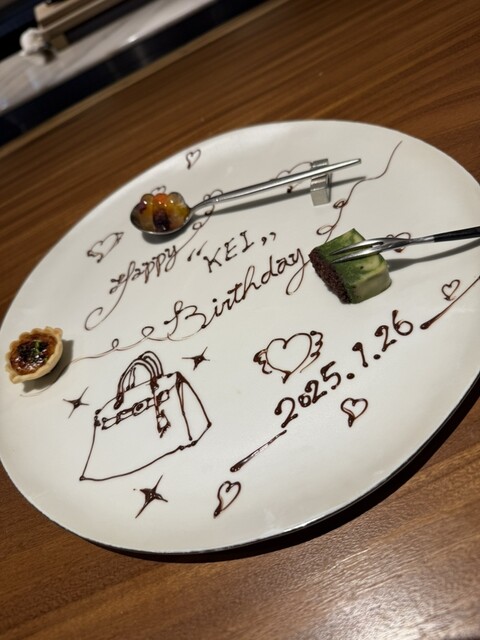 Happy "KEI"
Birthday
2025.1.26